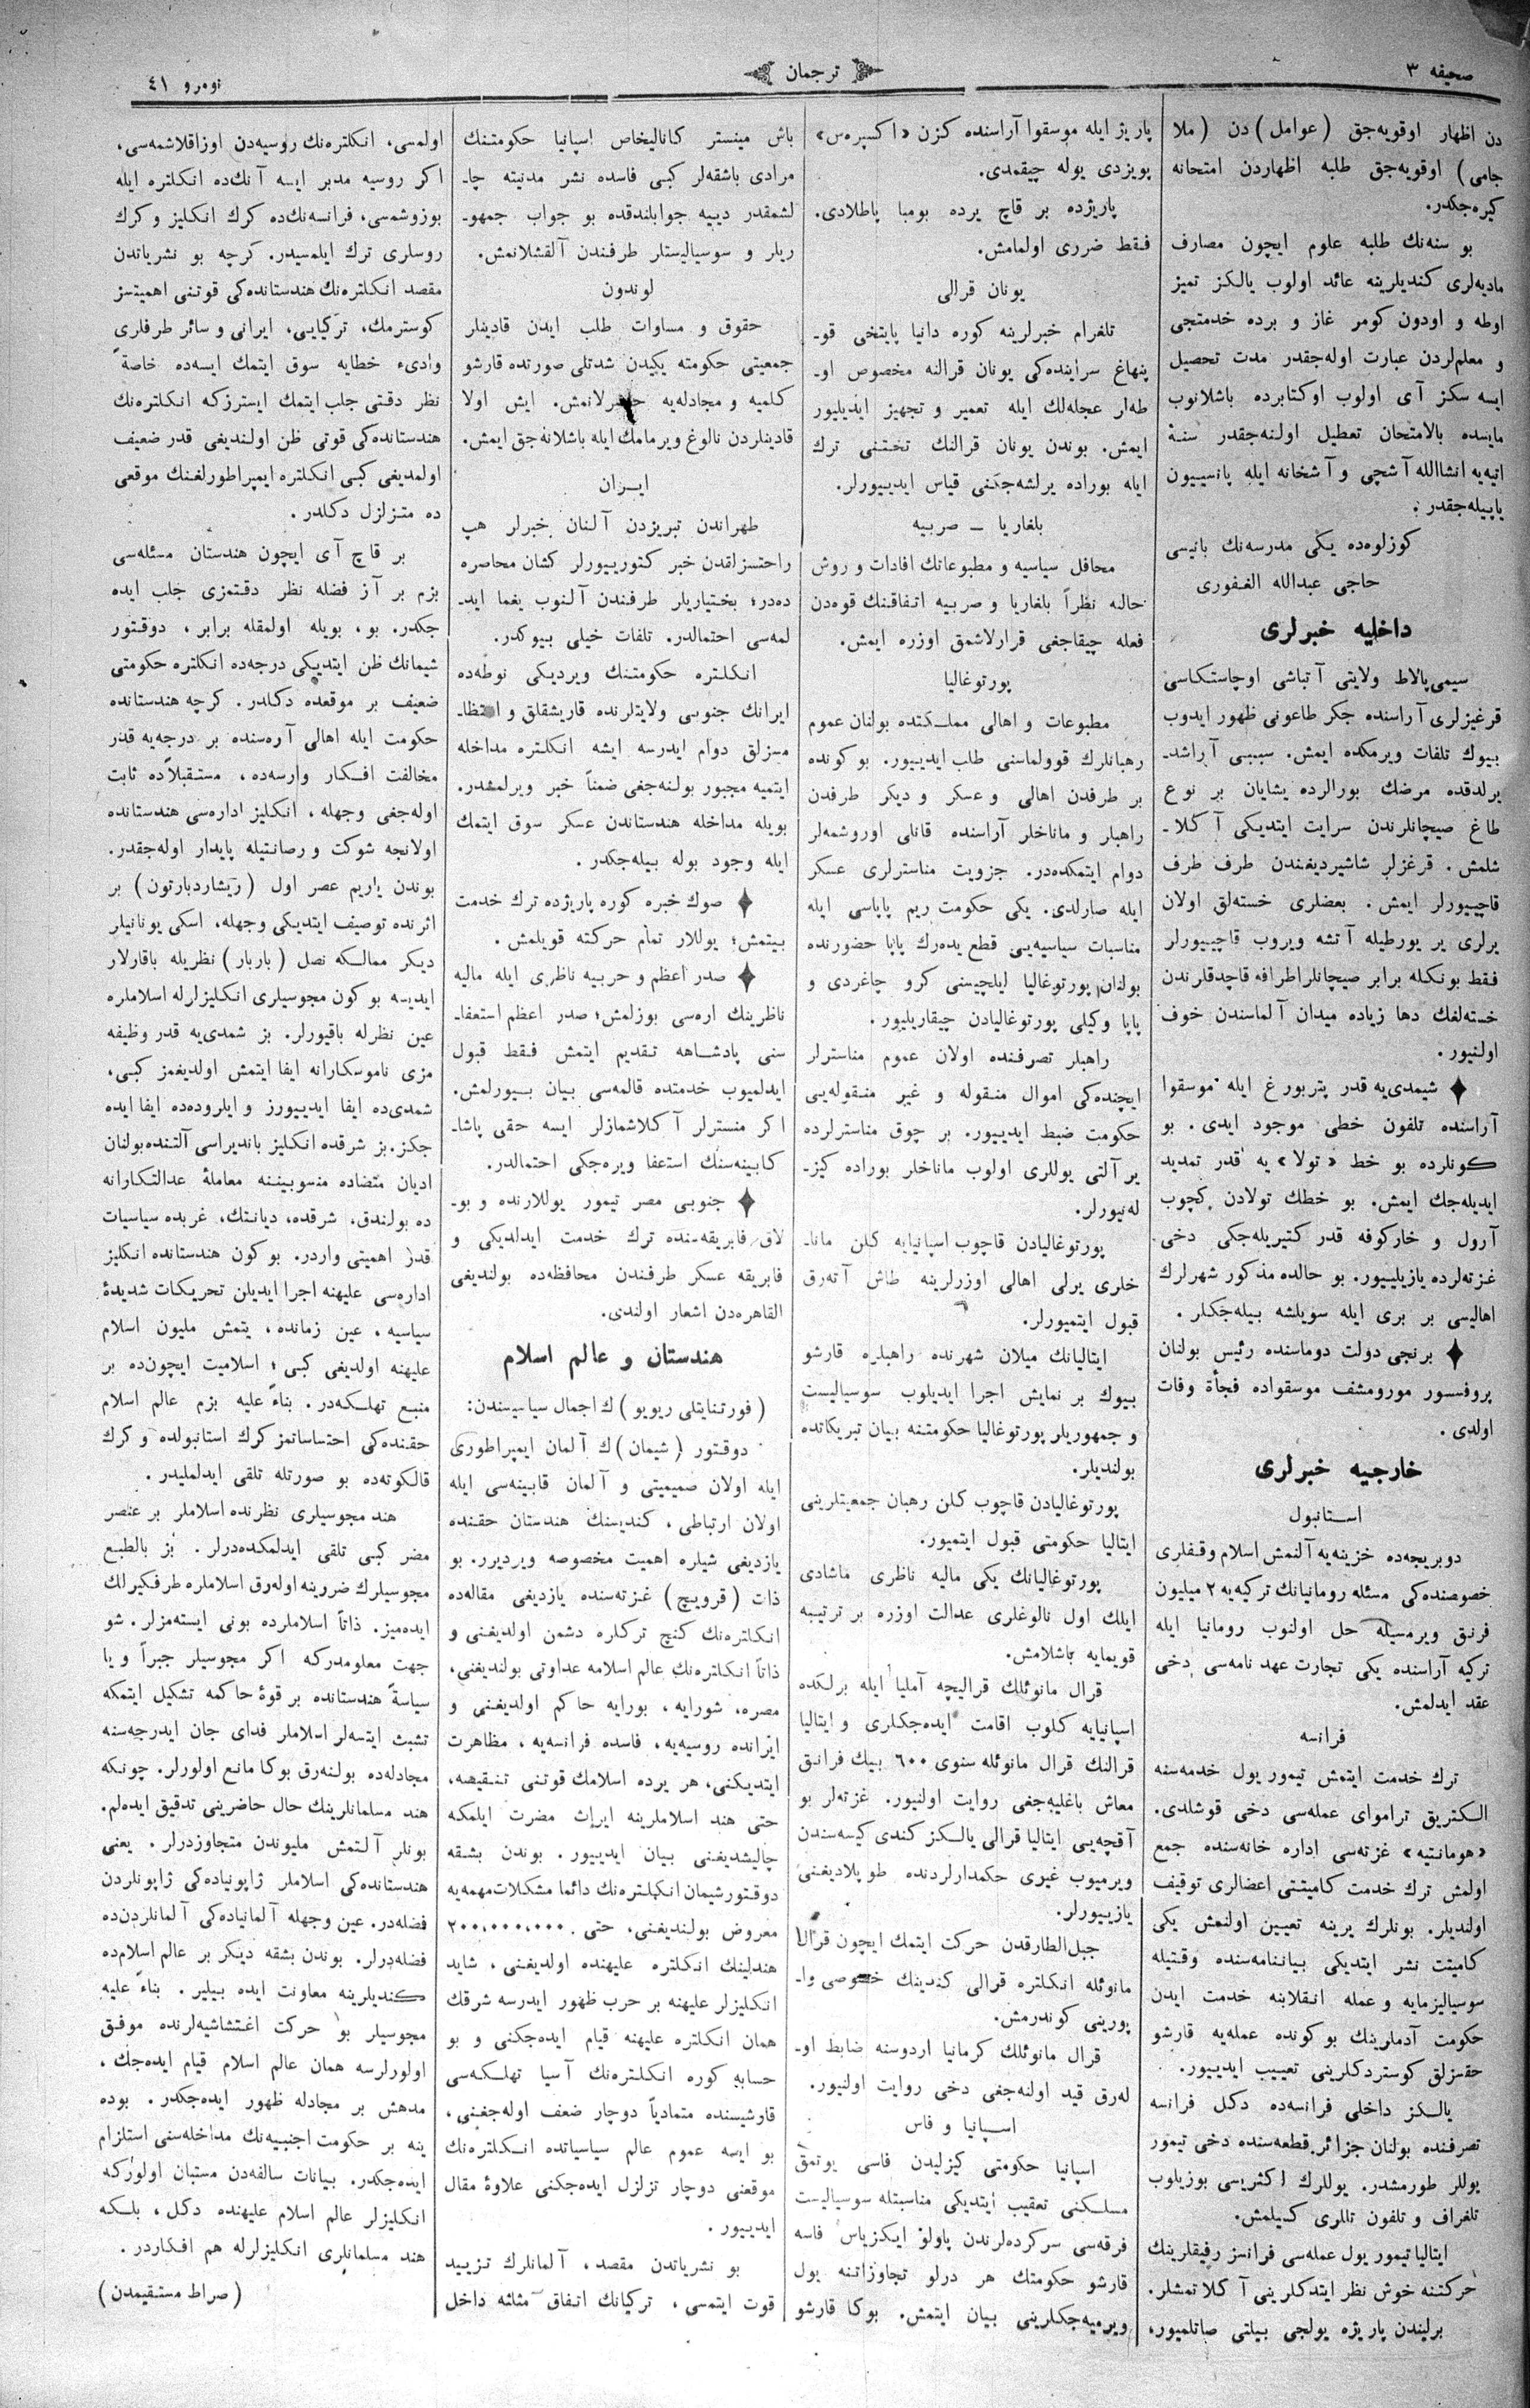 صحیفه ٣
ترجمان
نومرو ٤١
دن اظهار اوقویه‌جق (عوامل) دن (ملا
جامی) اوقویه‌جق طلبه اظهاردن امتحانه
کیره‌جکدر.
بو سنه‌نك طلبه علوم ایچون مصارف
مادیه‌لری کندیلرینه عائد اولوب یالکز تمیز
اوطه و اودون کومر غاز و برده خدمتجی
و معلم‌لردن عبارت اوله‌جقدر مدت تحصیل
ایسه سکز آی اولوب اوکتابرده باشلانوب
مایسده بالامتحان تعطیل اولنه‌جقدر سنهٔ
اتیه‌یه انشاالله آشچی و آشخانه ایله پانسییون
یاپیله‌جقدر.
کوزلوه‌ده یکی مدرسه‌نك بانیسی
حاجی عبدالله الغفوری
داخلیه خبرلری
سیمی‌پالاط ولایتی آتباشی اوچاستکاسی
قرغیزلری آراسنده جکر طاعونی ظهور ایدوب
بیوك تلفات ویرمکده ایمش. سببی آراشد-
یرلدقده مرضك بورالرده یشایان بر نوع
طاغ صیچانلرندن سرایت ایتدیکی آکلا-
شلمش. قرغزلر شاشیردیغندن طرف طرف
قاچییورلر ایمش. بعضلری خسته‌لق اولان
یرلری یر یورطیله آتشه ویروب قاچییورلر
فقط بونکله برابر صیچانلر اطرافه قاچدقلرندن
خسته‌لغك دها زیاده میدان آلماسندن خوف
اولنیور.
✦ شیمدی‌یه قدر پتربورغ ایله موسقوا
آراسنده تلفون خطی موجود ایدی. بو
کونلرده بو خط «تولا» یه قدر تمدید
ایدیله‌جك ایمش. بو خطك تولادن کچوب
آرول و خارکوفه قدر کتیریله‌جکی دخی
غزته‌لرده یازیلییور. بو حالده مذکور شهرلرك
اهالیسی بر بری ایله سویلشه بیله‌جکلر.
✦ برنجی دولت دوماسنده رئیس بولنان
پروفسسور مورومشف موسقواده فجأة وفات
اولدی.
خارجیه خبرلری
استانبول
دوبریجه‌ده خزینه‌یه آلنمش اسلام وقفلری
خصوصنده‌کی مسئله رومانیانك ترکیه‌یه ٢ میلیون
فرنق ویرمسیله حل اولنوب رومانیا ایله
ترکیه آراسنده یکی تجارت عهدنامه‌سی دخی
عقد ایدلمش.
فرانسه
ترك خدمت ایتمش تیمور یول خدمه‌سنه
الکتریق تراموای عمله‌سی دخی قوشلدی.
«هومانتیه» غزته‌سی اداره خانه‌سنده جمع
اولمش ترك خدمت کامیتتی اعضالری توقیف
اولندیلر. بونلرك یرینه تعیین اولنمش یکی
کامیتت نشر ایتدیکی بیاننامه‌سنده وقتیله
سوسیالیزمایه و عمله انقلابنه خدمت ایدن
حکومت آدملرینك بوکونده عمله‌یه قارشو
حقسزلق کوستردکلرینی تعییب ایدییور.
یالکز داخلی فرانسه‌ده دکل فرانسه
تصرفنده بولنان جزائر قطعه‌سنده دخی تیمور
یوللر طورمشدر. یوللرك اکثریسی بوزیلوب
تلغراف و تلفون تللری کسیلمش.
ایتالیا تیمور یول عمله‌سی فرانسز رفیقلرینك
حرکتنه خوش نظر ایتدکلرینی آکلاتمشلر.
برلیندن پاریژه یولجی بیلتی صاتلمیور،
پاریژ ایله موسقوا آراسنده کزن «اکسپره‌س»
پویزدی یوله چیقمدی.
پاریژده بر قاچ یرده بومبا پاطلادی.
فقط ضرری اولمامش.
یونان قرالی
تلغرام خبرلرینه کوره دانیا پایتختی قو-
پنهاغ سراینده‌کی یونان قرالنه مخصوص او-
طه‌لر عجله‌لك ایله تعمیر و تجهیز ایدیلیور
ایمش. بوندن یونان قرالنك تختنی ترك
ایله بوراده یرلشه‌جکنی قیاس ایدییورلر.
بلغاریا — صربیه
محافل سیاسیه و مطبوعاتك افادات و روش
حاله نظراً بلغاریا و صربیه اتفاقنك قوه‌دن
فعله چیقاجغی قرارلاشمق اوزره ایمش.
پورتوغالیا
مطبوعات و اهالی مملکتده بولنان عموم
رهبانلرك قوولماسنی طلب ایدییور. بوکونده
بر طرفدن اهالی و عسکر و دیکر طرفدن
راهبلر و ماناخلر آراسنده قانلی اوروشمه‌لر
دوام ایتمکده‌در. جزویت مناسترلری عسکر
ایله صارلدی. یکی حکومت ریم پاپاسی ایله
مناسبات سیاسیه‌یی قطع یده‌رك پاپا حضورنده
بولنان پورتوغالیا ایلچیسنی کرو چاغردی و
پاپا وکیلی پورتوغالیادن چیقاریلیور.
راهبلر تصرفنده اولان عموم مناسترلر
ایچنده‌کی اموال منقوله و غیر منقوله‌یی
حکومت ضبط ایدییور. بر چوق مناسترلرده
یر آلتی یوللری اولوب ماناخلر بوراده کیز-
له‌نیورلر.
پورتوغالیادن قاچوب اسپانیایه کلن مانا-
خلری یرلی اهالی اوزرلرینه طاش آته‌رق
قبول ایتمیورلر.
ایتالیانك میلان شهرنده راهبلره قارشو
بیوك بر نمایش اجرا ایدیلوب سوسیالیست
و جمهوریلر پورتوغالیا حکومتنه بیان تبریکاتده
بولندیلر.
پورتوغالیادن قاچوب کلن رهبان جمعیتلرینی
ایتالیا حکومتی قبول ایتمیور.
پورتوغالیانك یکی مالیه ناظری ماشادی
ایلك اول نالوغلری عدالت اوزره بر ترتیبه
قویمایه باشلامش.
قرال مانوئلك قرالیچه آملیا ایله برلکده
اسپانیایه کلوب اقامت ایده‌جکلری و ایتالیا
قرالنك قرال مانوئله سنوی ٦٠٠ بیك فرانق
معاش باغلیه‌جغی روایت اولنیور. غزته‌لر بو
آقچه‌یی ایتالیا قرالی یالکز کندی کیسه‌سندن
ویرمیوب غیری حکمدارلردنده طوپلادیغنی
یازییورلر.
جبل‌الطارقدن حرکت ایتمك ایچون قرال
مانوئله انکلتره قرالی کندینك خصوصی وا-
پورینی کوندرمش.
قرال مانوئلك کرمانیا اردوسنه ضابط او-
له‌رق قید اولنه‌جغی دخی روایت اولنیور.
اسپانیا و فاس
اسپانیا حکومتی کیزلیدن فاسی یوتمق
مسلکنی تعقیب ایتدیکی مناسبتله سوسیالیست
فرقه‌سی سرکرده‌لرندن پاولو ایکزیاس فاسه
قارشو حکومتك هر درلو تجاوزاتنه یول
ویرمیه‌جکلرینی بیان ایتمش. بوکا قارشو
باش مینستر کانالیخاص اسپانیا حکومتنك
مرادی باشقه‌لر کبی فاسده نشر مدنیته چا-
لشمقدر دییه جوابلندقده بو جواب جمهو-
ریلر و سوسیالیستلر طرفندن آلقشلانمش.
لوندون
حقوق و مساوات طلب ایدن قادینلر
جمعیتی حکومته یکیدن شدتلی صورتده قارشو
کلمیه و مجادله‌یه حاضرلانمش. ایش اولا
قادینلردن نالوغ ویرمامك ایله باشلانه‌جق ایمش.
ایران
طهراندن تبریزدن آلنان خبرلر هپ
راحتسزلقدن خبر کتورییورلر کشان محاصره
ده‌در؛ بختیاریلر طرفندن آلنوب یغما اید-
لمه‌سی احتمالدر. تلفات خیلی بیوکدر.
انکلتره حکومتنك ویردیکی نوطه‌ده
ایرانك جنوبی ولایتلرنده قاریشقلق و انتظا-
مسزلق دوام ایدرسه ایشه انکلتره مداخله
ایتمیه مجبور بولنه‌جغی ضمناً خبر ویرلمشدر.
بویله مداخله هندستاندن عسکر سوق ایتمك
ایله وجود بوله بیله‌جکدر.
✦ صوك خبره کوره پاریژده ترك خدمت
بیتمش؛ یوللار تمام حرکته قویلمش.
✦ صدر اعظم و حربیه ناظری ایله مالیه
ناظرینك اره‌سی بوزلمش؛ صدر اعظم استعفا-
سنی پادشاهه تقدیم ایتمش فقط قبول
ایدلمیوب خدمتده قالمه‌سی بیان بیورلمش.
اکر منسترلر آکلاشمازلر ایسه حقی پاشا-
کابینه‌سنك استعفا ویره‌جکی احتمالدر.
✦ جنوبی مصر تیمور یوللارنده و بو-
لاق فابریقه‌سنده ترك خدمت ایدلدیکی و
فابریقه عسکر طرفندن محافظه‌ده بولندیغی
القاهره‌دن اشعار اولندی.
هندستان و عالم اسلام
(فورتنایتلی ریویو) ك اجمال سیاسیسندن:
دوقتور (شیمان) ك آلمان ایمپراطوری
ایله اولان صمیمیتی و آلمان قابینه‌سی ایله
اولان ارتباطی، کندیسنك هندستان حقنده
یازدیغی شیلره اهمیت مخصوصه ویردیرر. بو
ذات (قرویچ) غزته‌سنده یازدیغی مقاله‌ده
انکلتره‌نك کنج ترکلره دشمن اولدیغنی و
ذاتاً انکلتره‌نك عالم اسلامه عداوتی بولندیغنی،
مصره، شورایه، بورایه حاکم اولدیغنی و
ایرانده روسیه‌یه، فاسده فرانسه‌یه، مظاهرت
ایتدیکنی، هر یرده اسلامك قوتنی تنقیصه،
حتی هند اسلاملرینه ایراث مضرت ایلمکه
چالیشدیغنی بیان ایدییور. بوندن بشقه
دوقتور شیمان انکلتره‌نك دائما مشکلات مهمه‌یه
معروض بولندیغنی، حتی ٢٠٠،٠٠٠،٠٠٠
هندلینك انکلتره علیهنده اولدیغنی، شاید
انکلیزلر علیهنه بر حرب ظهور ایدرسه شرقك
همان انکلتره علیهنه قیام ایده‌جکنی و بو
حسابه کوره انکلتره‌نك آسیا تهلکه‌سی
قارشیسنده متمادیاً دوچار ضعف اوله‌جغنی،
بو ایسه عموم عالم سیاسیاتده انکلتره‌نك
موقعنی دوچار تزلزل ایده‌جکنی علاوهٔ مقال
ایدییور.
بو نشریاتدن مقصد، آلمانلرك تزیید
قوت ایتمسی، ترکیانك اتفاق مثلثه داخل
اولمسی، انکلتره‌نك روسیه‌دن اوزاقلاشمه‌سی،
اکر روسیه مدبر ایسه آنك‌ده انکلتره ایله
بوزوشمسی، فرانسه‌نك‌ده کرك انکلیز و کرك
روسلری ترك ایلمسیدر. کرچه بو نشریاتدن
مقصد انکلتره‌نك هندستانده‌کی قوتنی اهمیتسز
کوسترمك، ترکیایی، ایرانی و سائر طرفلری
وادیء خطایه سوق ایتمك ایسه‌ده خاصةً
نظر دقتی جلب ایتمك ایسترزکه انکلتره‌نك
هندستانده‌کی قوتی ظن اولندیغی قدر ضعیف
اولمدیغی کبی انکلتره ایمپراطورلغنك موقعی
ده متزلزل دکلدر.
بر قاچ آی ایچون هندستان مسئله‌سی
بزم بر آز فضله نظر دقتمزی جلب ایده
جکدر. بو، بویله اولمقله برابر، دوقتور
شیمانك ظن ایتدیکی درجه‌ده انکلتره حکومتی
ضعیف بر موقعده دکلدر. کرچه هندستانده
حکومت ایله اهالی آره‌سنده بر درجه‌یه قدر
مخالفت افکار وارسه‌ده، مستقبلاًده ثابت
اوله‌جغی وجهله، انکلیز اداره‌سی هندستانده
اولانجه شوکت و رصانتیله پایدار اوله‌جقدر.
بوندن یاریم عصر اول (ریشاردبارتون) بر
اثرنده توصیف ایتدیکی وجهله، اسکی یونانیلر
دیکر ممالکه نصل (باربار) نظریله باقارلار
ایدیسه بوکون مجوسیلری انکلیزلرله اسلاملره
عین نظرله باقیورلر. بز شمدی‌یه قدر وظیفه
مزی ناموسکارانه ایفا ایتمش اولدیغمز کبی،
شمدی‌ده ایفا ایدییورز و ایلروده‌ده ایفا ایده
جکز. بز شرقده انکلیز باندیراسی آلتنده بولنان
ادیان متضاده منسوبیننه معاملهٔ عدالتکارانه
ده بولندق. شرقده، دیانتك، غربده سیاسیات
قدر اهمیتی واردر. بوکون هندستانده انکلیز
اداره‌سی علیهنه اجرا ایدیلن تحریکات شدیدهٔ
سیاسیه، عین زمانده، یتمش ملیون اسلام
علیهنه اولدیغی کبی؛ اسلامیت ایچون‌ده بر
منبع تهلکه‌در. بناءً علیه بزم عالم اسلام
حقنده‌کی احتساساتمز کرك استانبولده و کرك
قالکوته‌ده بو صورتله تلقی ایدلملیدر.
هند مجوسیلری نظرنده اسلاملر بر عنصر
مضر کبی تلقی ایدلمکده‌درلر. بز بالطبع
مجوسیلرك ضررینه اوله‌رق اسلاملره طرفکیرلك
ایده‌میز. ذاتاً اسلاملرده بونی ایسته‌مزلر. شو
جهت معلومدرکه اکر مجوسیلر جبراً و یا
سیاسةً هندستانده بر قوهٔ حاکمه تشکیل ایتمکه
تشبث ایتسه‌لر اسلاملر فدای جان ایدرجه‌سنه
مجادله‌ده بولنه‌رق بوکا مانع اولورلر. چونکه
هند مسلمانلرینك حال حاضرینی تدقیق ایده‌لم.
بونلر آلتمش ملیوندن متجاوزدرلر. یعنی
هندستانده‌کی اسلاملر ژاپونیاده‌کی ژاپونلردن
فضله‌در. عین وجهله آلمانیاده‌کی آلمانلردن‌ده
فضله‌درلر. بوندن بشقه دیکر بر عالم اسلام‌ده
کندیلرینه معاونت ایده بیلیر. بناءً علیه
مجوسیلر بو حرکت اغتشاشیه‌لرنده موفق
اولورلرسه همان عالم اسلام قیام ایده‌جك،
مدهش بر مجادله ظهور ایده‌جکدر. بوده
ینه بر حکومت اجنبیه‌نك مداخله‌سنی استلزام
ایده‌جکدر. بیانات سالفه‌دن مستبان اولورکه
انکلیزلر عالم اسلام علیهنده دکل، بلکه
هند مسلمانلری انکلیزلرله هم افکاردر.
(صراط مستقیمدن)